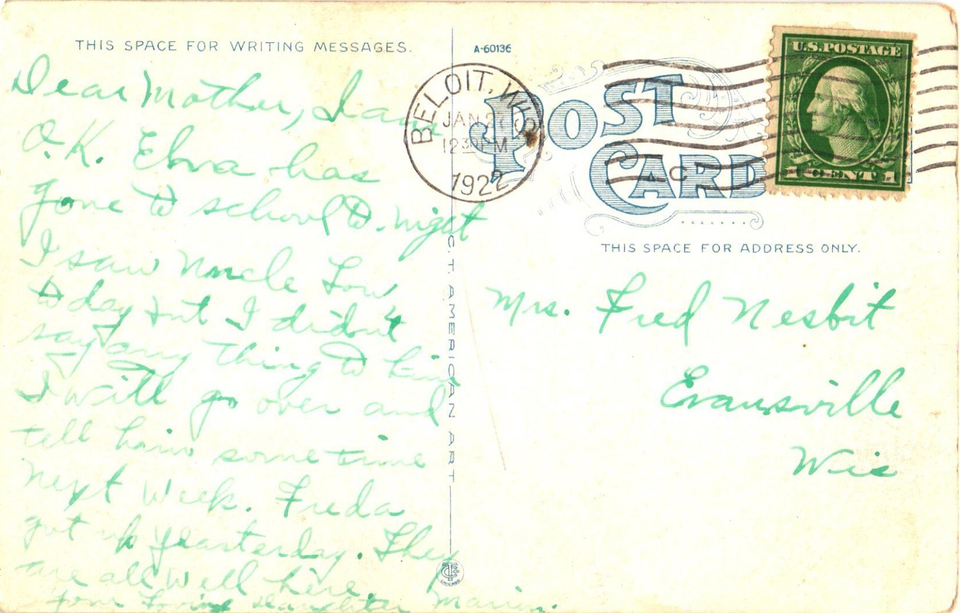 THIS SPACE FOR WRITING MESSAGES.
Dear Mother, I am
O.K. Elva has
gone to school to-night
I saw Uncle Lou
to day but I didn't
say any thing to him
I will go over and
tell him some time
next week. Freda
got up yearsterday. They
are all well here.
your loving daughter Marion.
A-60136
C.T. AMERICAN ART
BELOIT, WIS.
JAN 27
12 30 PM
1922
POST
CARD
U.S. POSTAGE
1 CENT 1
THIS SPACE FOR ADDRESS ONLY.
Mrs. Fred Nesbit
Evansville
Wis